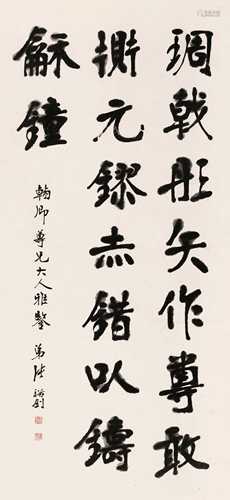 琱戟彤矢作尊敢
㨃元鏐赤錯以鑄
龢鐘
翰卿尊兄大人雅鑒 弟陸